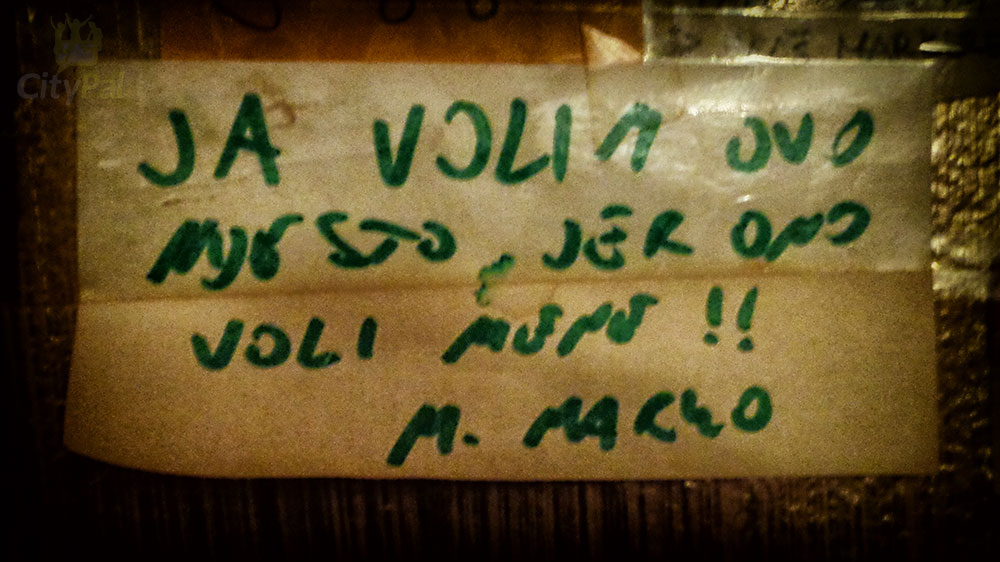 CityPal
JA VOLIM OVO
MJESTO, JER ONO
VOLI MENE !!
M. MARKO